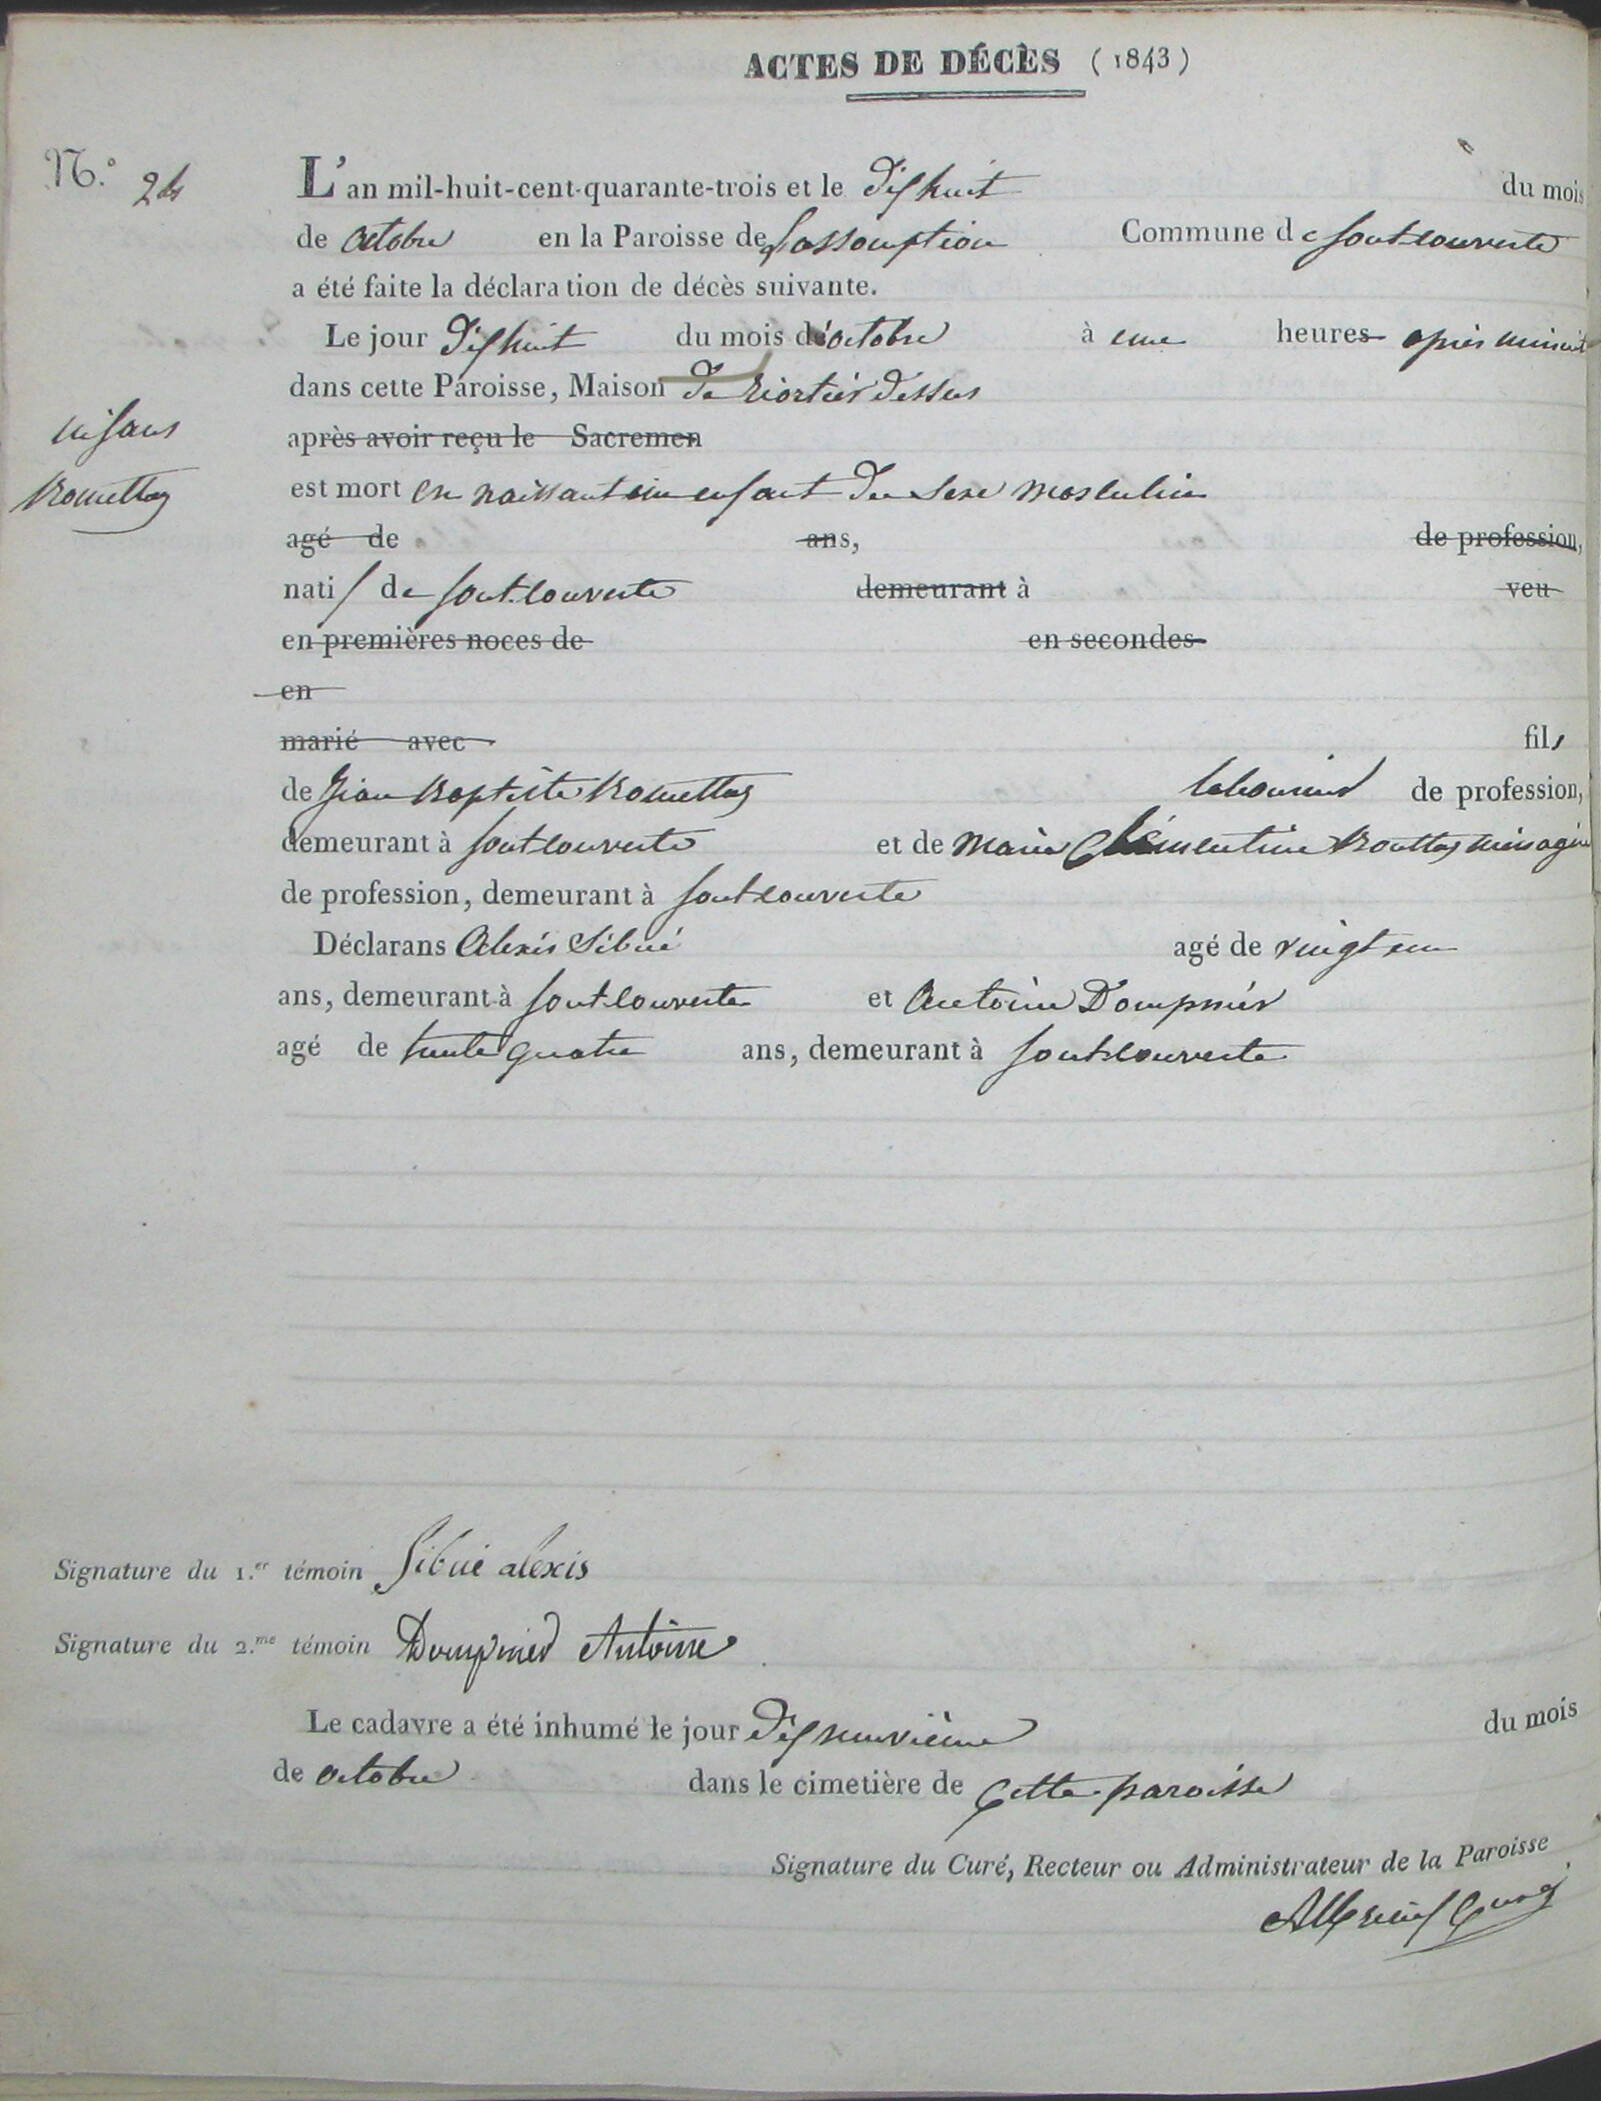 ACTES DE DÉCÈS (1843)
N.° 24 L'an mil-huit-cent-quarante-trois et le dixhuit du mois
de octobre en la Paroisse de Lassomption Commune de fontcouverte
a été faite la déclaration de décès suivante.
Le jour dixhuit du mois de octobre à une heures après minuit
dans cette Paroisse, Maison de dessus
après avoir reçu le Sacremen
est mort en naissant un enfant du sexe masculin
agé de ans, de profession,
natif de fontcouverte demeurant à veu
en premières noces de en secondes
en
marié avec fils
de Jean Baptiste laboureur de profession,
demeurant à fontcouverte et de marie Clémentine ménagère
de profession, demeurant à fontcouverte
Déclarans Alexis Sibué agé de vingt un
ans, demeurant à fontcouverte et Antoine Dompnier
agé de trente quatre ans, demeurant à fontcouverte
Signature du 1.er témoin Sibué alexis
Signature du 2.me témoin Dompnier Antoine
Le cadavre a été inhumé le jour dixneuvième du mois
de octobre dans le cimetière de Cette paroisse
Signature du Curé, Recteur ou Administrateur de la Paroisse
Curé